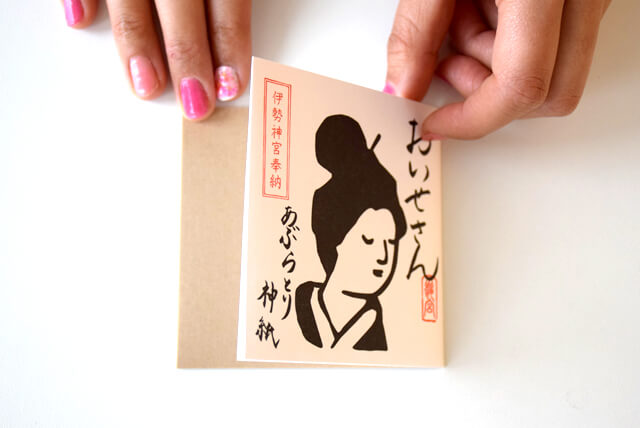 おいせさん
伊勢神宮奉納
あぶらとり
神紙